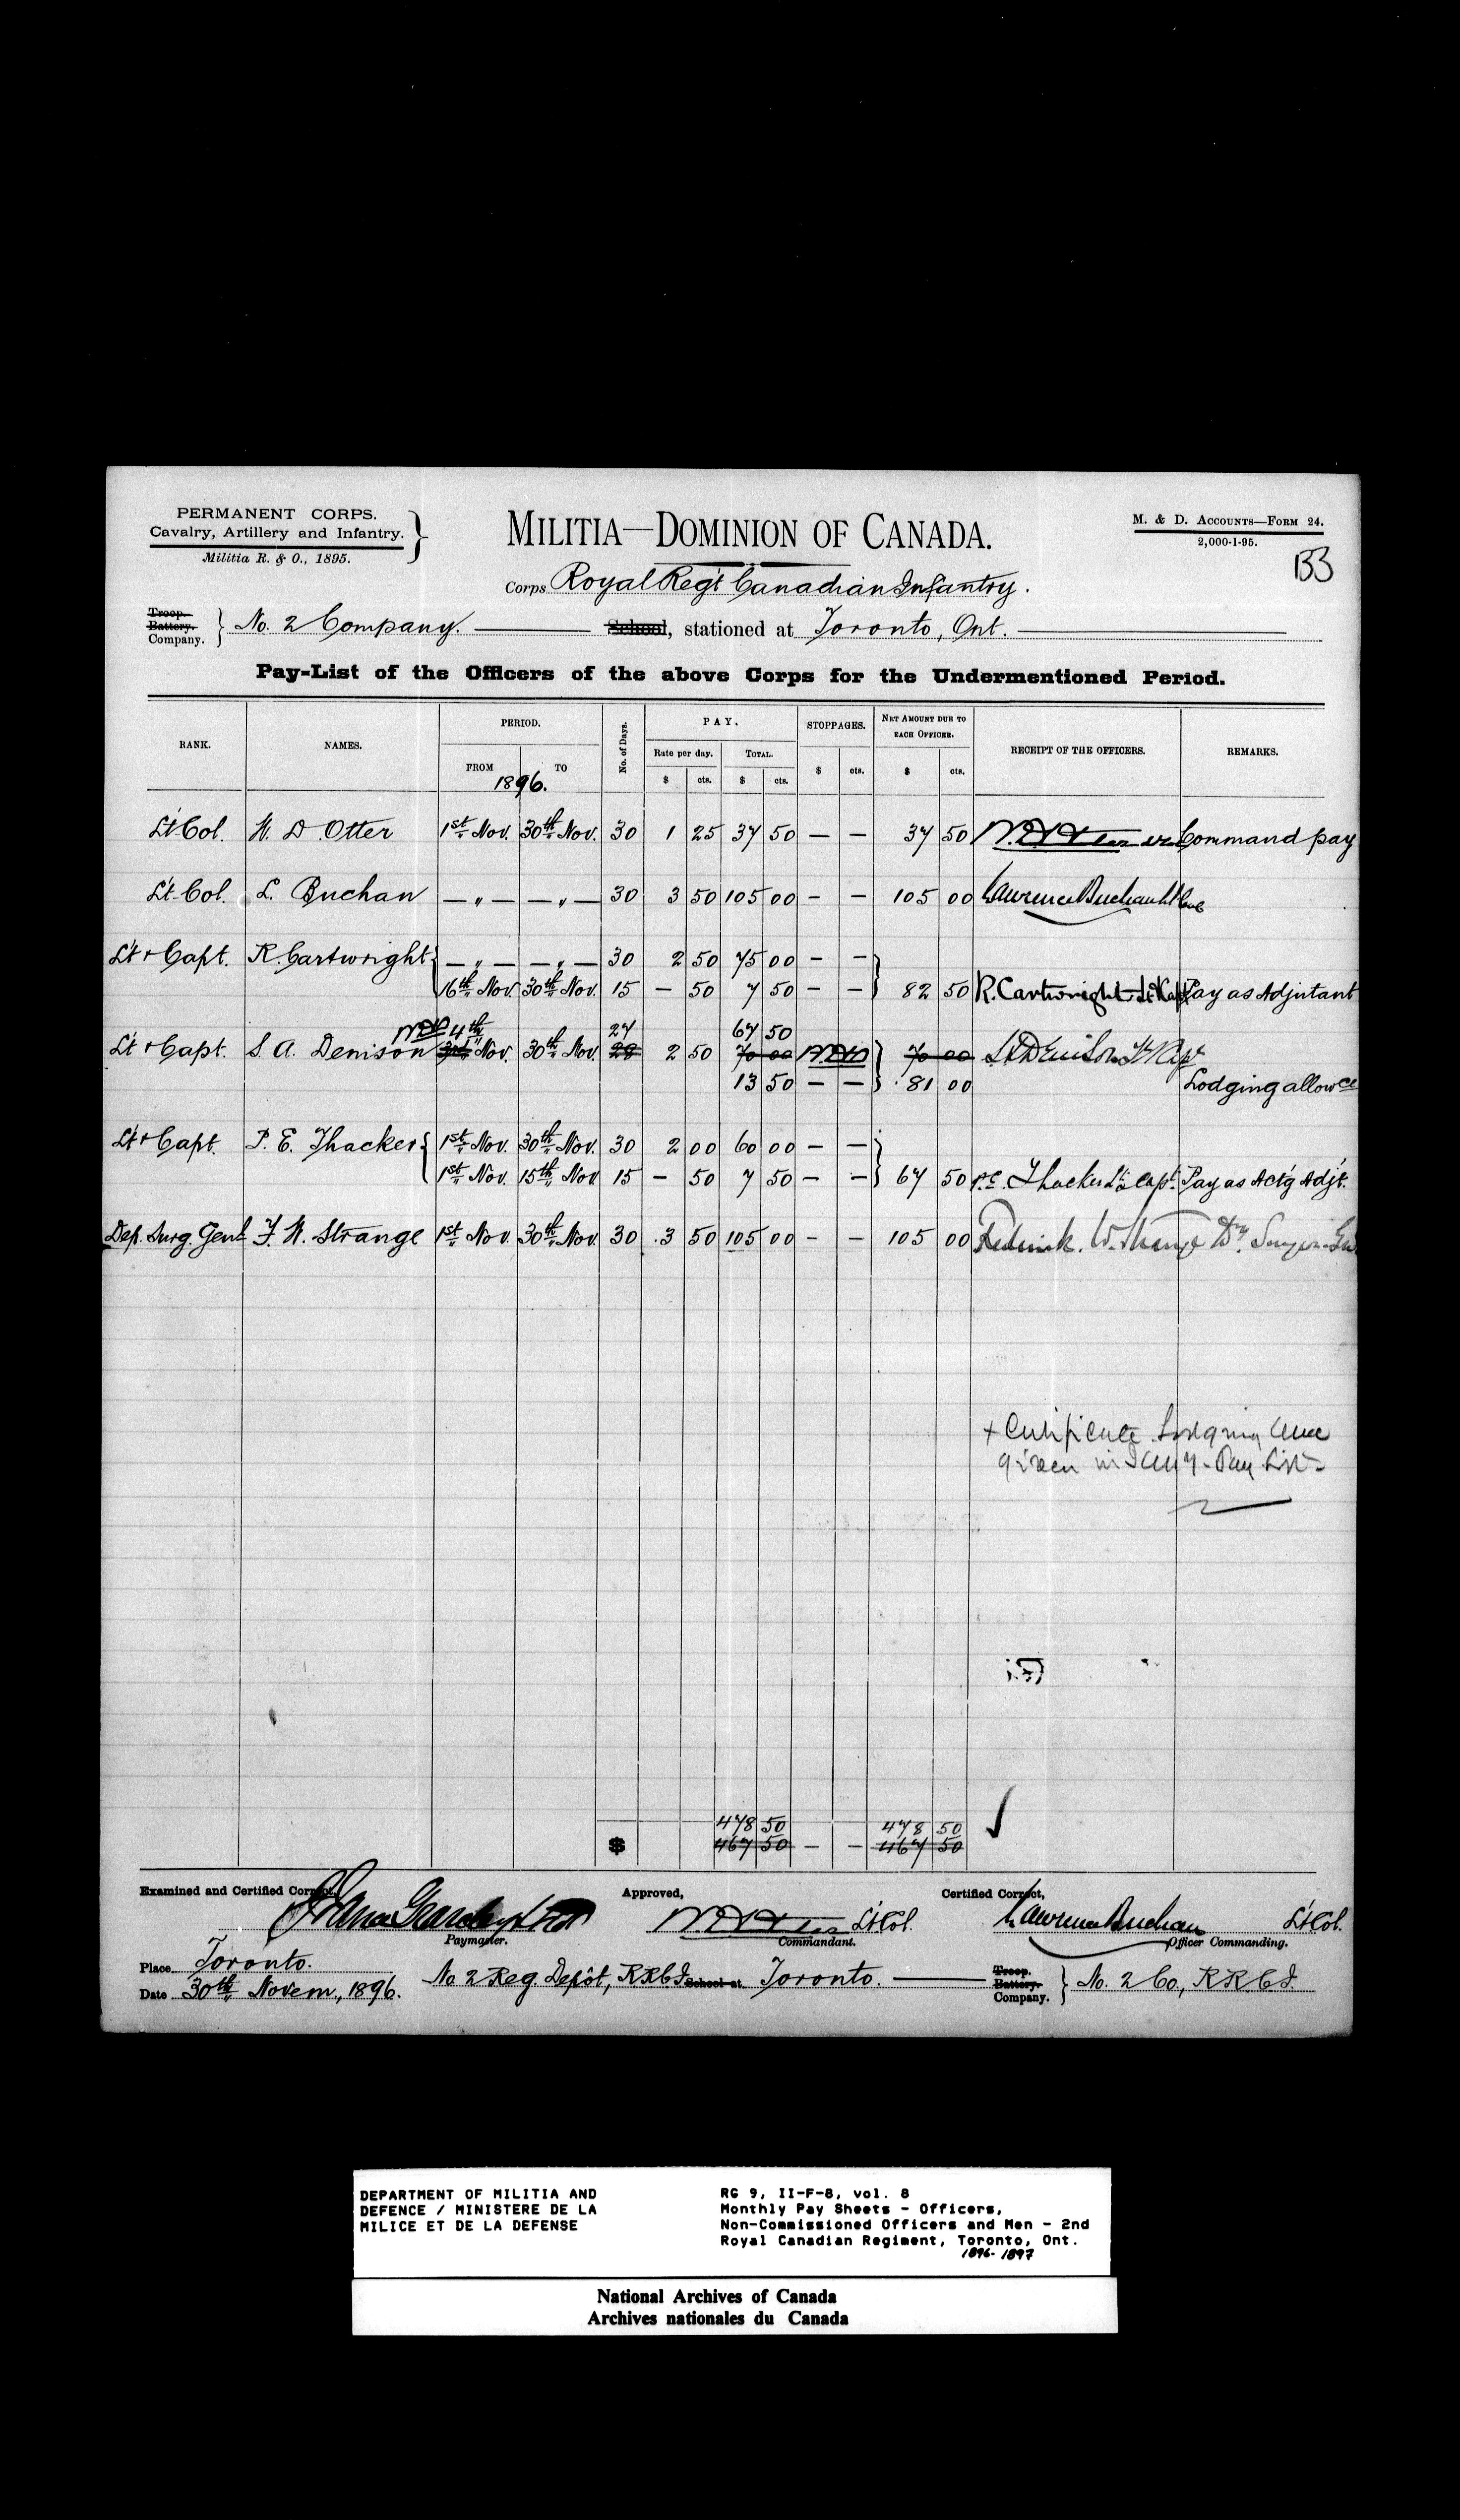 PERMANENT CORPS.
Cavalry, Artillery and Infantry.
Militia R. & O., 1895.
MILITIA—DOMINION OF CANADA.
M. & D. ACCOUNTS—FORM 24.
2,000-1-95.
133
Corps Royal Reg't Canadian Infantry.
Troop.
Battery.
Company. } No. 2 Company. School, stationed at Toronto, Ont.
Pay-List of the Officers of the above Corps for the Undermentioned Period.
RANK. NAMES. PERIOD. No. of Days. PAY. STOPPAGES. NET AMOUNT DUE TO EACH OFFICER. RECEIPT OF THE OFFICERS. REMARKS.
FROM TO Rate per day. TOTAL.
1896.
$ cts. $ cts. $ cts. $ cts.
Lt Col. W. D. Otter 1st Nov. 30th Nov. 30 1 25 37 50 — — 37 50 Command pay
Lt-Col. L. Buchan — " — — " — 30 3 50 105 00 — — 105 00 Lawrence Buchan Lt Col
Lt + Capt. R. Cartwright { — " — — " — 30 2 50 75 00 — — }
16th Nov. 30th Nov. 15 — 50 7 50 — — } 82 50 R. Cartwright Lt & Capt Pay as Adjutant
WDO 4th 27 67 50
Lt + Capt. S. A. Denison 3rd Nov. 30th Nov. 28 2 50 70 00 WDO } 70 00 S A Denison Lt & Capt
13 50 — — } 81 00 Lodging allowce
Lt + Capt. P. E. Thacker { 1st Nov. 30th Nov. 30 2 00 60 00 — — }
1st Nov 15th Nov 15 — 50 7 50 — — } 67 50 P.E. Thacker Lt & Capt. Pay as Act'g Adjt.
Dep. Surg. Genl F. W. Strange 1st Nov. 30th Nov. 30 3 50 105 00 — — 105 00 Frederick. W. Strange Dy. Surgeon-Gen
+ Certificate Lodging Allce
given in Pay List
478 50 478 50
$ 467 50 — — 467 50
Examined and Certified Correct, Approved, Certified Correct,
Paymaster. Lt Col. Commandant. Lawrence Buchan Lt Col. Officer Commanding.
Place Toronto.
Date 30th Novem., 1896. No 2 Reg. Depôt, R.R.C.I. School at Toronto. Troop.
Battery.
Company. } No. 2 Co., R.R.C.I.
DEPARTMENT OF MILITIA AND
DEFENCE / MINISTERE DE LA
MILICE ET DE LA DEFENSE
RG 9, II-F-8, vol. 8
Monthly Pay Sheets - Officers,
Non-Commissioned Officers and Men - 2nd
Royal Canadian Regiment, Toronto, Ont.
1896-1897
National Archives of Canada
Archives nationales du Canada